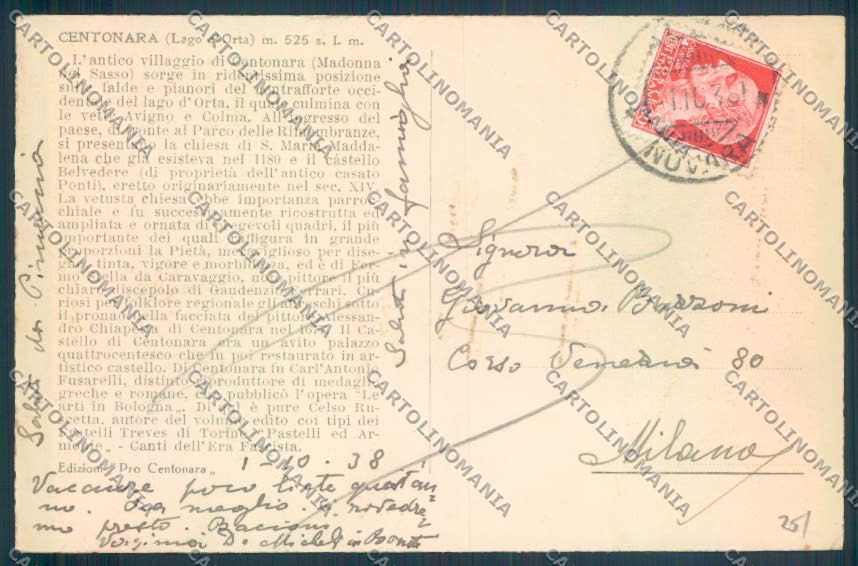 CENTONARA (Lago d'Orta) m. 525 s. l. m.
L'antico villaggio di Centonara (Madonna
del Sasso) sorge in ridentissima posizione
sulle falde e pianori del contrafforte occi-
dentale del lago d'Orta, il quale culmina con
le vette Avigno e Colma. All'ingresso del
paese, di fronte al Parco delle Rimembranze,
si presentano la chiesa di S. Maria Madda-
lena che già esisteva nel 1180 e il castello
Belvedere (di proprietà dell'antico casato
Ponti), eretto originariamente nel sec. XIV.
La vetusta chiesa ebbe importanza parroc-
chiale e fu successivamente ricostrutta ed
ampliata e ornata di pregevoli quadri, il più
importante dei quali raffigura in grande
proporzioni la Pietà, meraviglioso per dise-
gno, tinta, vigore e morbidezza, ed è di Fer-
mo Stella da Caravaggio, noto pittore il più
chiaro discepolo di Gaudenzio Ferrari. Cu-
riosi per folklore regionale gli affreschi sotto
il pronao della facciata del pittore Alessan-
dro Chiapera di Centonara nel
Castello di Centonara era un avito palazzo
quattrocentesco che fu poi restaurato in ar-
tistico castello. Di Centonara fu Carl'Antonio
Fusarelli, distinto riproduttore di medaglie
greche e romane, che pubblicò l'opera "Le
arti in Bologna„. Di è pure Celso Ru-
scetta, autore del volume edito coi tipi dei
Fratelli Treves di Torino Pastelli ed Ar-
monie„ - Canti dell'Era Fascista.
Edizione "Pro Centonara„
1-10-38
Vacanze poco liete quest'an=
no. Ora meglio. A rivedre=
mo presto. Bacioni
De in
Saluti da
Saluti in famiglia
Signora
Giovanna
Corso Venezia 80
Milano
25/
NOVARA
CARTOLINOMANIA